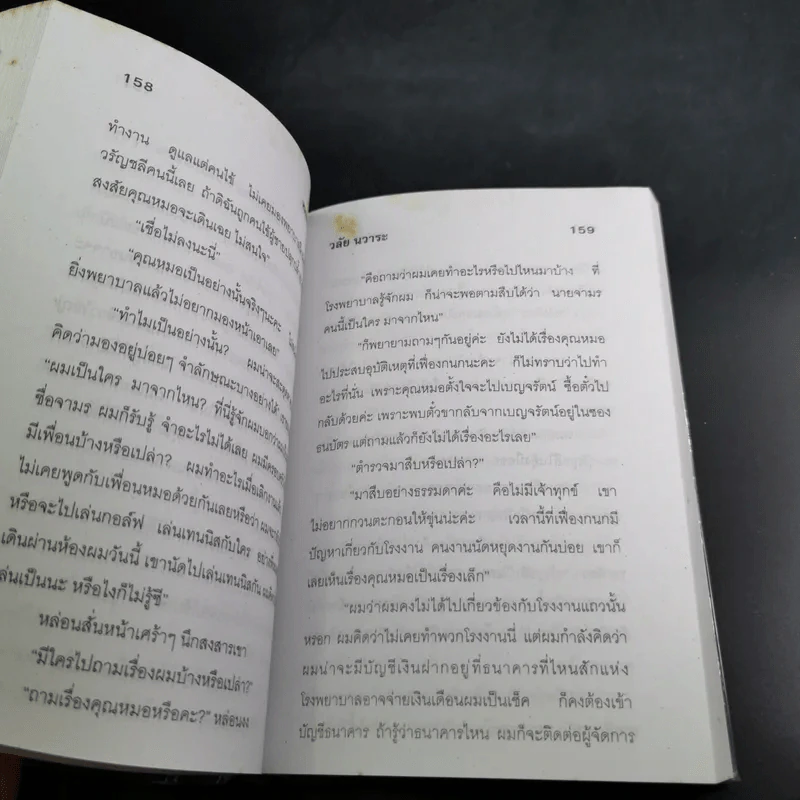 158
ทำงาน ดูแลแต่คนไข้ ไม่เคยมองพยาบาล
วรัญชลีคนนี้เลย ถ้าดิฉันถูกคนไข้ผู้ชาย
สงสัยคุณหมอจะเดินเฉย ไม่สนใจ"
"เชื่อไม่ลงนะนี่"
"คุณหมอเป็นอย่างนั้นจริงๆนะคะ
ยิ่งพยาบาลแล้วไม่อยากมองหน้าเอาเลย"
"ทำไมเป็นอย่างนั้น? ผมน่าจะ
คิดว่ามองอยู่บ่อยๆ จำลักษณะบางอย่างได้
"ผมเป็นใคร มาจากไหน? ที่นี่รู้จักผมบอกว่า
ชื่อจามร ผมก็รับรู้ จำอะไรไม่ได้เลย ผมมี
มีเพื่อนบ้างหรือเปล่า? ผมทำอะไรเมื่อเลิกงาน
ไม่เคยพูดกับเพื่อนหมอด้วยกันเลยหรือว่า ผมจะ
หรือจะไปเล่นกอล์ฟ เล่นเทนนิสกับใคร อย่าง
เดินผ่านห้องผมวันนี้ เขานัดไปเล่นเทนนิสกัน
เล่นเป็นนะ หรือไงก็ไม่รู้ซี"
หล่อนสั่นหน้าเศร้าๆ นึกสงสารเขา
"มีใครไปถามเรื่องผมบ้างหรือเปล่า?"
"ถามเรื่องคุณหมอหรือคะ?" หล่อน
วลัย นวาระ 159
"คือถามว่าผมเคยทำอะไรหรือไปไหนมาบ้าง ที่
โรงพยาบาลรู้จักผม ก็น่าจะพอตามสืบได้ว่า นายจามร
คนนี้เป็นใคร มาจากไหน"
"ก็พยายามถามๆกันอยู่ค่ะ ยังไม่ได้เรื่องคุณหมอ
ไปประสบอุบัติเหตุที่เฟื่องกนกนะคะ ก็ไม่ทราบว่าไปทำ
อะไรที่นั่น เพราะคุณหมอตั้งใจจะไปเบญจรัตน์ ซื้อตั๋วไป
กลับด้วยค่ะ เพราะพบตั๋วขากลับจากเบญจรัตน์อยู่ในซอง
ธนบัตร แต่ถามแล้วก็ยังไม่ได้เรื่องอะไรเลย"
"ตำรวจมาสืบหรือเปล่า?"
"มาสืบอย่างธรรมดาค่ะ คือไม่มีเจ้าทุกข์ เขา
ไม่อยากกวนตะกอนให้ขุ่นน่ะค่ะ เวลานี้ที่เฟื่องกนกมี
ปัญหาเกี่ยวกับโรงงาน คนงานนัดหยุดงานกันบ่อย เขาก็
เลยเห็นเรื่องคุณหมอเป็นเรื่องเล็ก"
"ผมว่าผมคงไม่ได้ไปเกี่ยวข้องกับโรงงานแถวนั้น
หรอก ผมคิดว่าไม่เคยทำพวกโรงงานนี่ แต่ผมกำลังคิดว่า
ผมน่าจะมีบัญชีเงินฝากอยู่ที่ธนาคารที่ไหนสักแห่ง
โรงพยาบาลอาจจ่ายเงินเดือนผมเป็นเช็ค ก็คงต้องเข้า
บัญชีธนาคาร ถ้ารู้ว่าธนาคารไหน ผมก็จะติดต่อผู้จัดการ